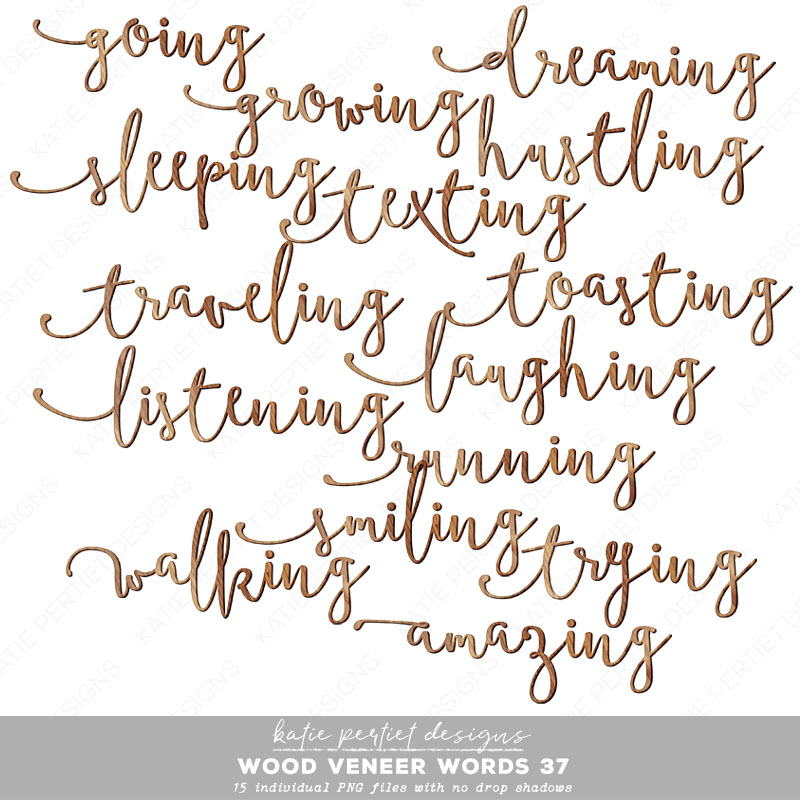 going
dreaming
growing
hustling
sleeping
texting
traveling
toasting
laughing
listening
running
smiling
walking
trying
amazing
katie pertiet designs
WOOD VENEER WORDS 37
15 individual PNG files with no drop shadows
KATIE PERTIET DESIGNS